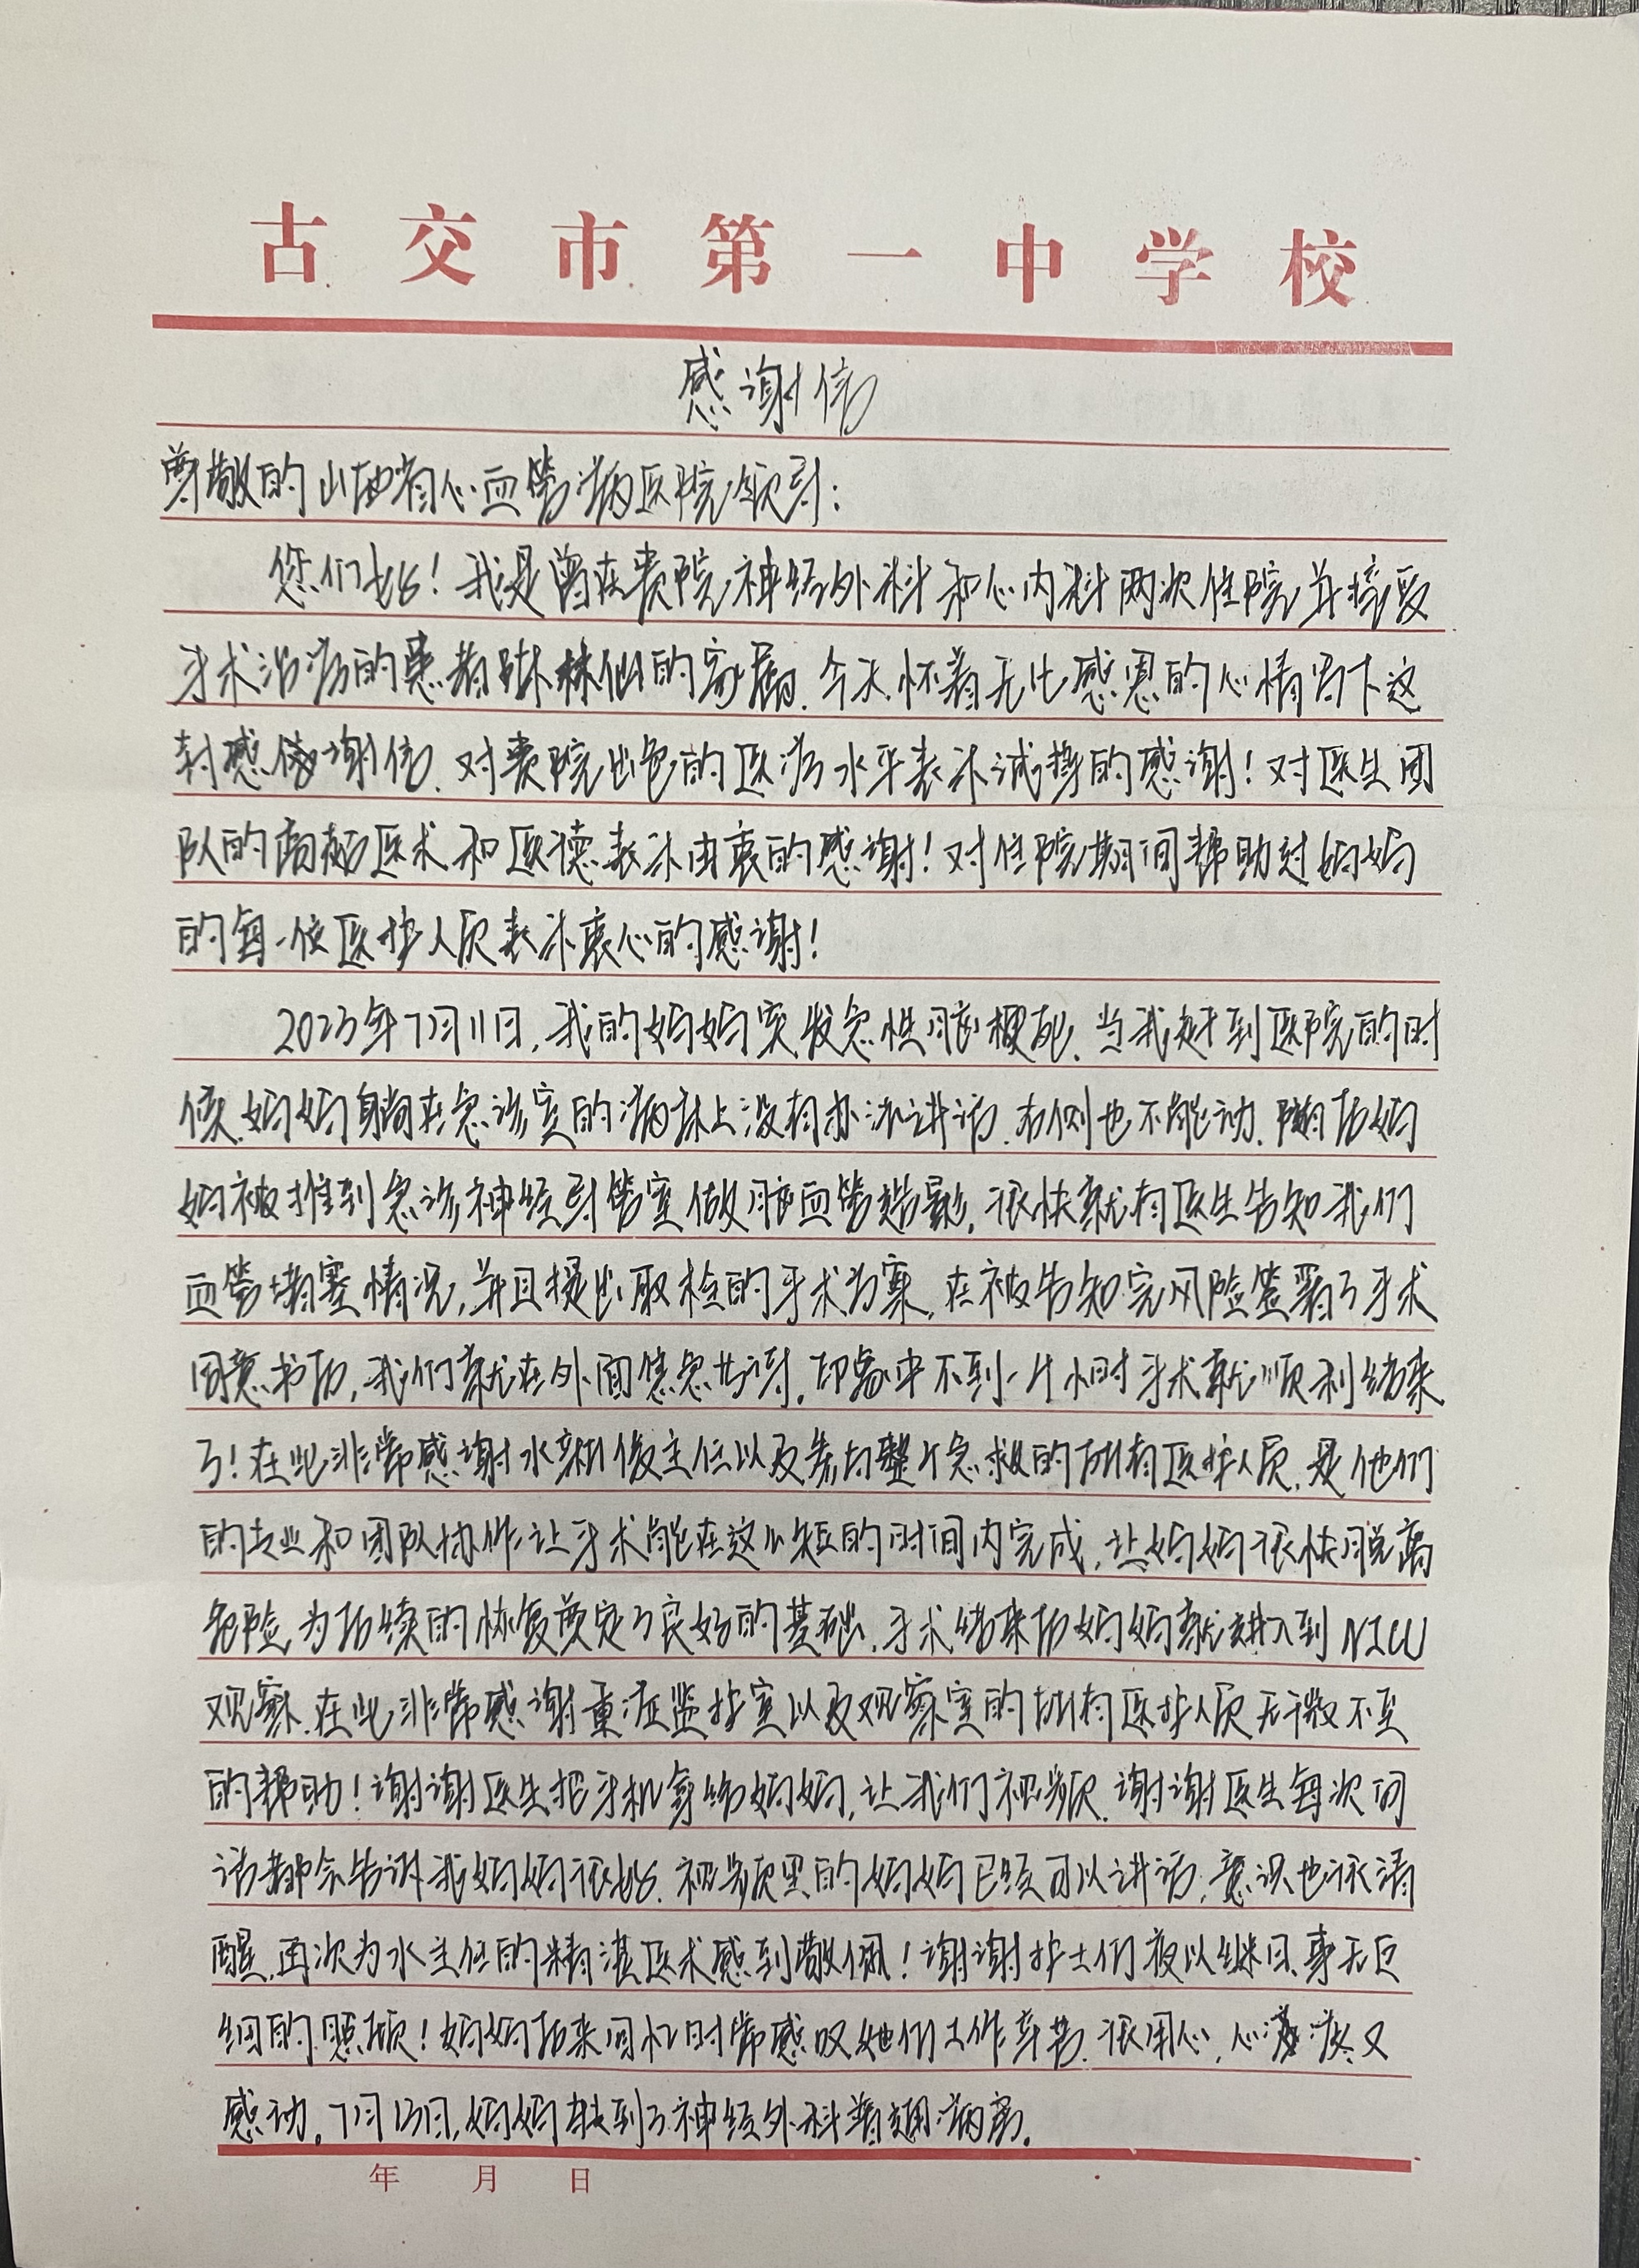 古交市第一中学校
感谢信
尊敬的山西省心血管病医院领导:
您们好!我是曾在贵院神经外科和心内科两次住院并接受
手术治疗的患者 林仙的家属.今天怀着无比感恩的心情写下这
封感谢信.对贵院出色的医疗水平表示诚挚的感谢!对医生团
队的高超医术和医德表示由衷的感谢!对住院期间帮助过妈妈
的每一位医护人员表示衷心的感谢!
2023年7月11日,我的妈妈突发急性脑梗死.当我赶到医院的时
候.妈妈躺在急诊室的病床上没有办法讲话.右侧也不能动.随后妈
妈被推到急诊神经导管室做脑血管造影.很快就有医生告知我们
血管堵塞情况,并且提出取栓的手术方案.在被告知完风险签署了手术
同意书后,我们就在外面焦急等待.印象中不到一个小时手术就顺利结束
了!在此非常感谢水新俊主任以及参与整个急救的所有医护人员.是他们
的专业和团队协作让手术能在这么短的时间内完成,让妈妈很快脱离
危险为后续的恢复奠定了良好的基础.手术结束后妈妈就进入到NICU
观察.在此非常感谢重症监护室以及观察室的所有医护人员无微不至
的帮助!谢谢医生把手机拿给妈妈,让我们视频.谢谢医生每次回
话都会告诉我妈妈很好.视频里的妈妈已经可以讲话,意识也很清
醒.再次为水主任的精湛医术感到敬佩!谢谢护士们夜以继日、事无巨
细的照顾!妈妈后来回忆时常感叹她们工作辛苦.很用心,心疼又
感动。7月13日,妈妈转到了神经外科普通病房.
年 月 日